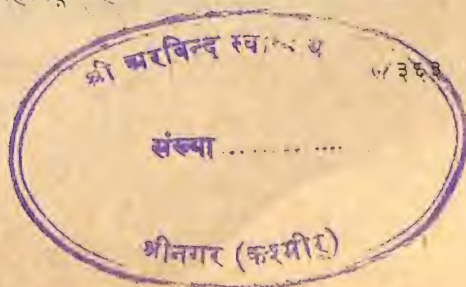 श्री अरविन्द
३६३
संख्या ........ ....
श्रीनगर (कश्मीर)